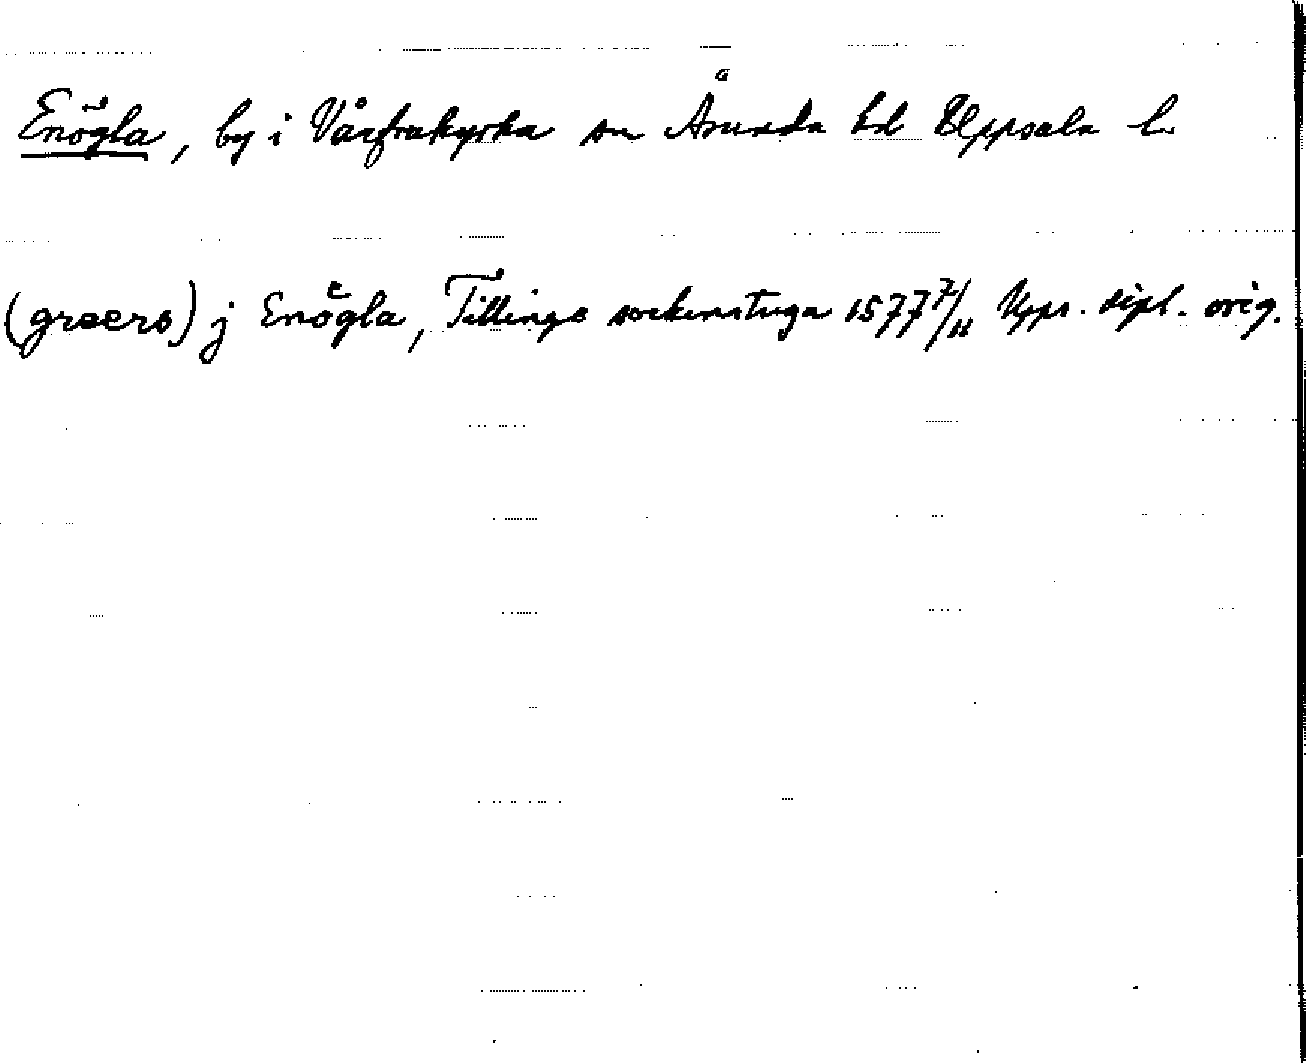 Enögla, by i Vårfrukyrka sn Åsunda hd Uppsala l.
(graers) j Enögla, Tillinge sockenstuga 1577 7/11 Upps. dipl. orig.